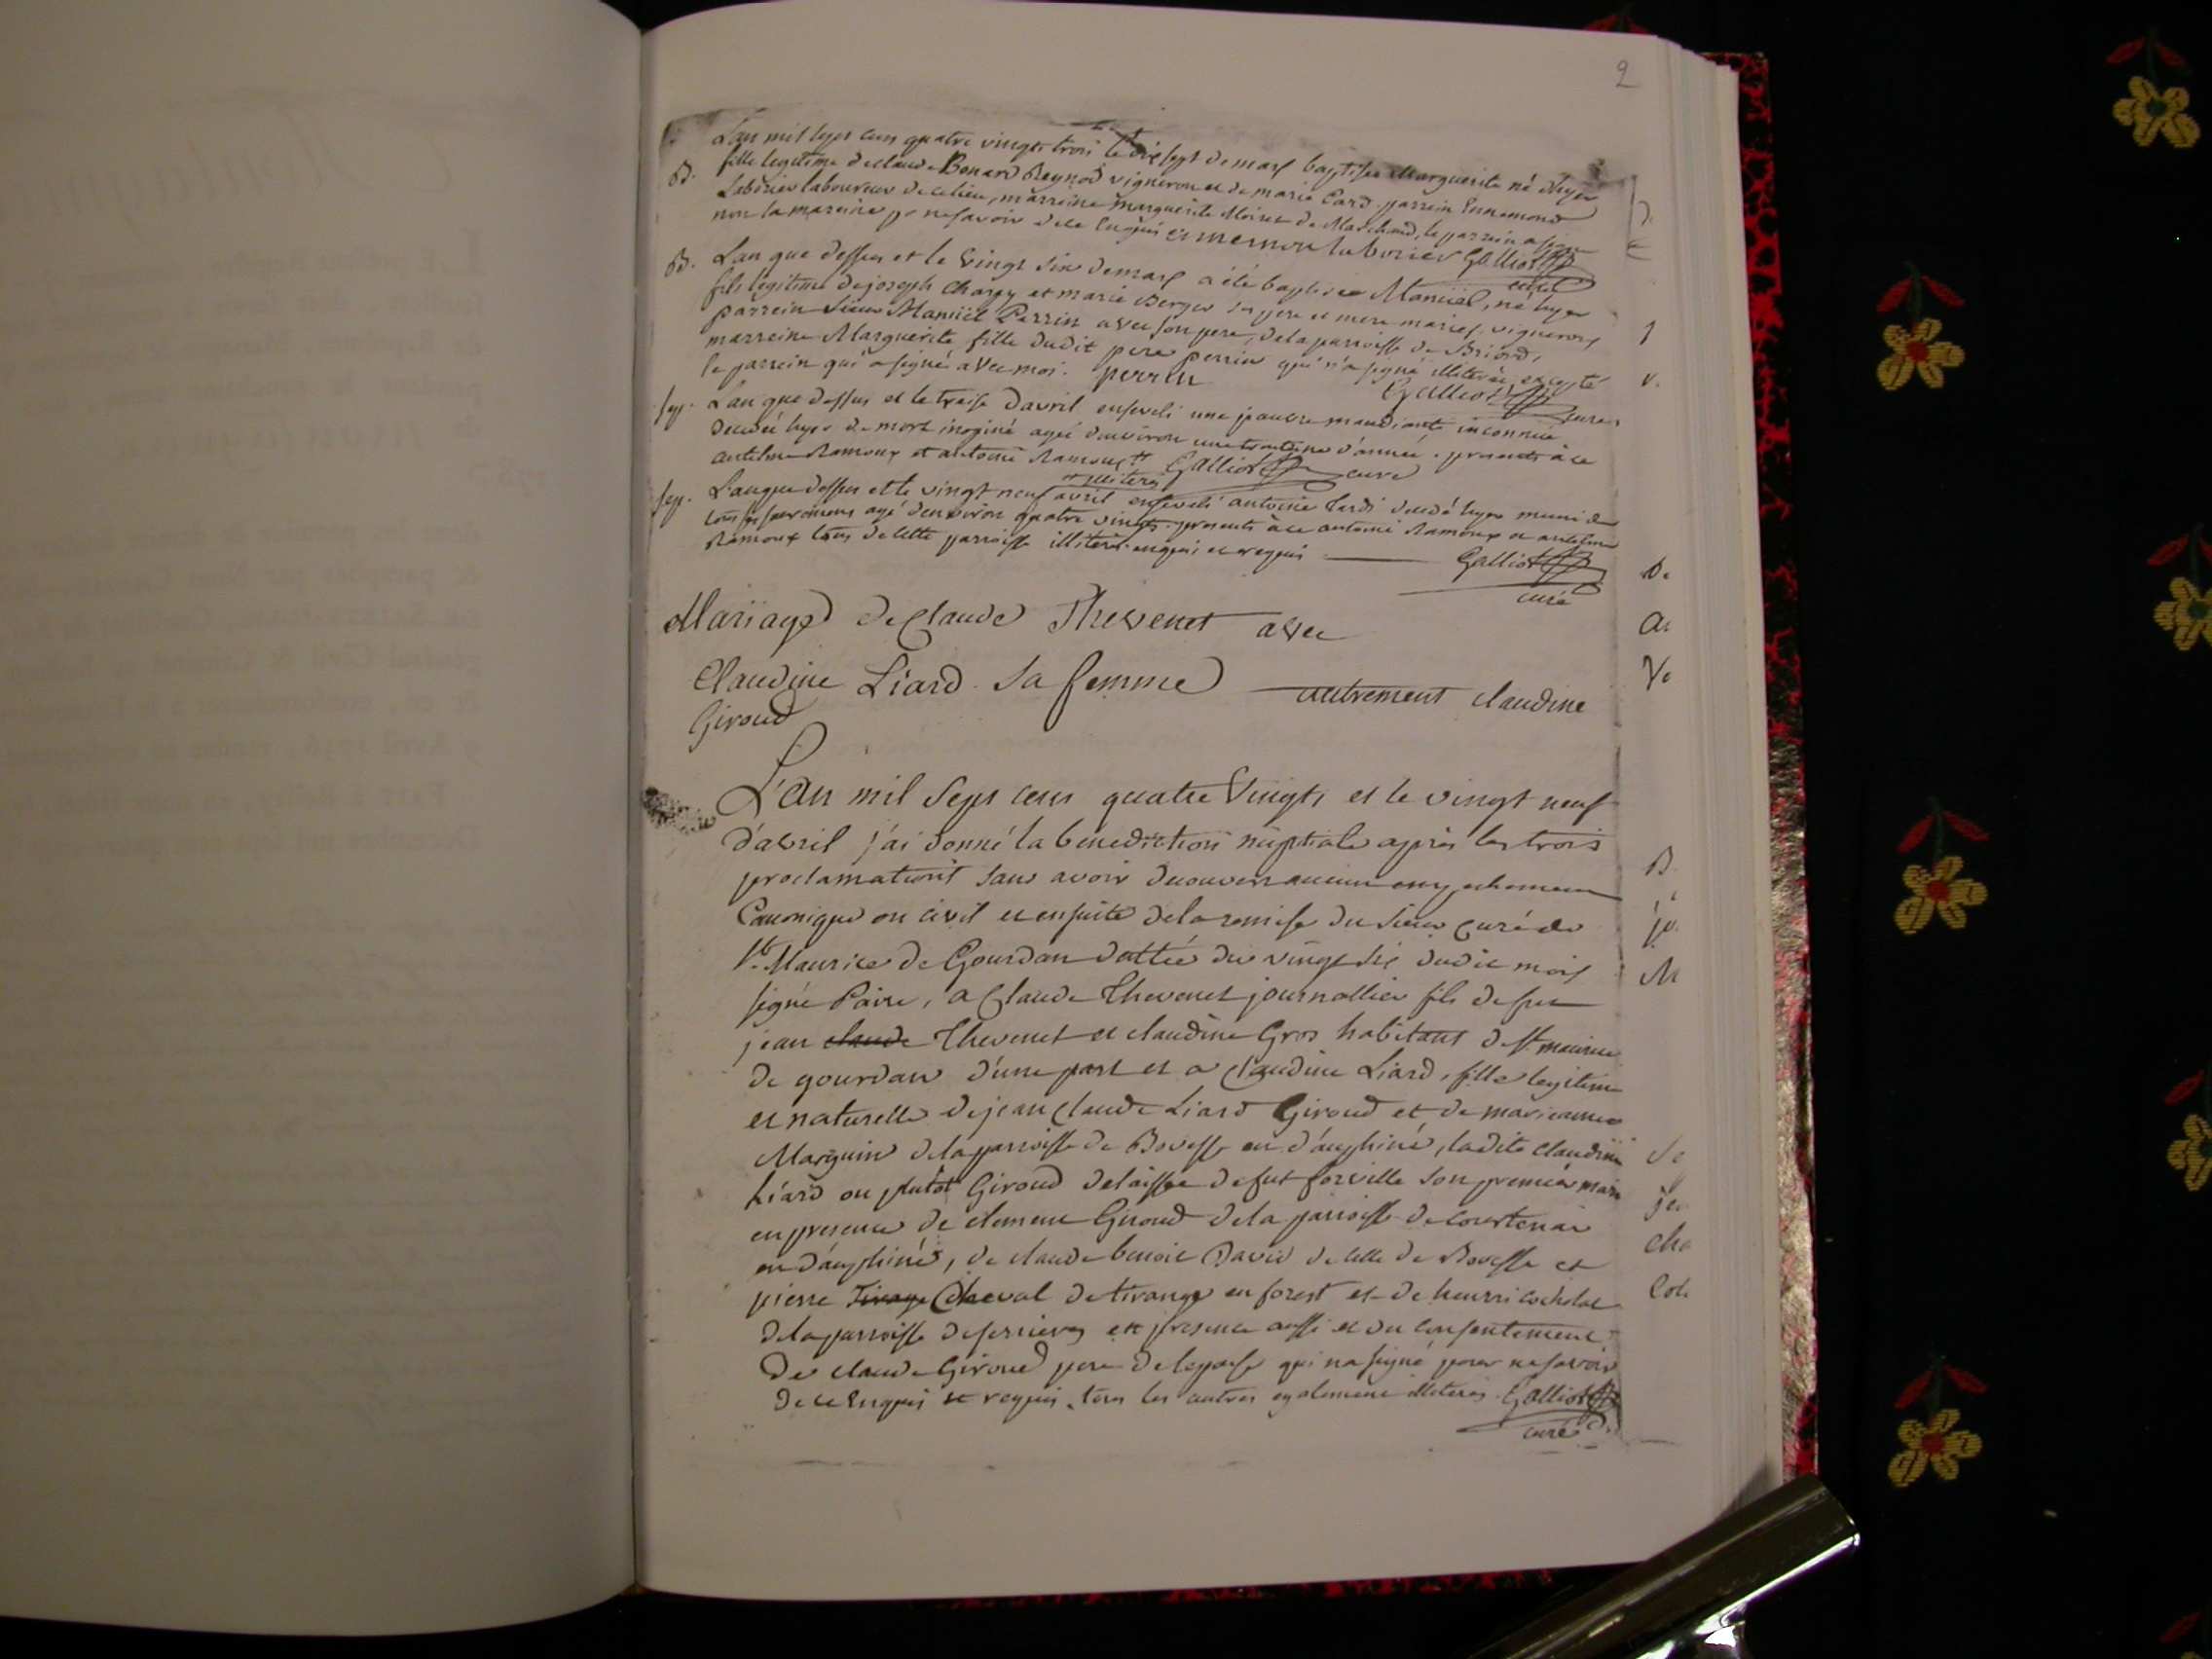 2
L'an mil sept cens quatre vingts trois le dix sept de mars baptisée Marguerite né d'hyer
B. fille legitime de claude Bonard Reynod vigneron et de marie Card. parrein Ennemond
Laborier laboureur de ce lieu, marreine Marguerite Moiret de Marchand, le parrein a signé
non la mareine pr ne savoir de ce enquis ennemon laborier Galliot
curé
B. L'an que dessus et le vingt six de mars a été baptisée Manüel, né hyer
fils legitime de joseph Chargy et marie Berger ses pere et mere mariés, vignerons
parrein sieur Manüel Perrin avec son pere, de la parroisse de Briord,
marreine Marguerite fille dudit pere perrin qui n'a signé illiterée excepté
le parrein qui a signé avec moi. perrin Galliot
curé
sep. L'an que dessus et le treise d'avril enseveli une pauvre mandiante inconnue
decedée hyer de mort inoginé agée d'environ une trentaine d'année. presents à ce
antelme Ramoux et antoine Ramoux Galliot curé
et illiteres
sep. L'an que dessus et le vingt neuf avril enseveli antoine Tardi decedé hyer muni de
tous ses sacremens agé d'environ quatre vingts. presents à ce antoine Ramoux et antelme
Ramoux tous de cette parroisse illiteres enquis et requis Galliot
curé
Mariage de Claude Thevenet avec
Claudine Liard sa femme autrement claudine
Giroud
L'an mil sept cens quatre vingts et le vingt neuf
d'avril j'ai donné la benediction nuptiale après les trois
proclamations sans avoir decouvert aucun empechement
Canonique ou civil et ensuite de la remise du sieur curé de
St. Maurice de Gourdan dattée du vingt six dudit mois
signé Paire, a Claude Thevenet journallier fils de feu
jean claude Thevenet et claudine Gros habitant de St. maurice
de gourdan d'une part et a Claudine Liard, fille legitime
et naturelle de jean Claude Liard Giroud et de marieanne
Marguin de la parroisse de Bovesse en d'auphiné, ladite claudine
Liard ou plutôt Giroud delaissée de fut forville son premier mari
en presence de clement Giroud de la parroisse de courtenai
en d'auphiné, de claude benoit David de celle de Bovesse et
pierre Tirange Cheval de tirange en forest et de henri cocholat
de la parroisse de ferrieres en presence aussi et du consentement
de claude Giroud pere de lepouse qui n'a signé pour ne savoir
de ce enquis et requis, tous les autres egalement illiteres. Galliot
curé